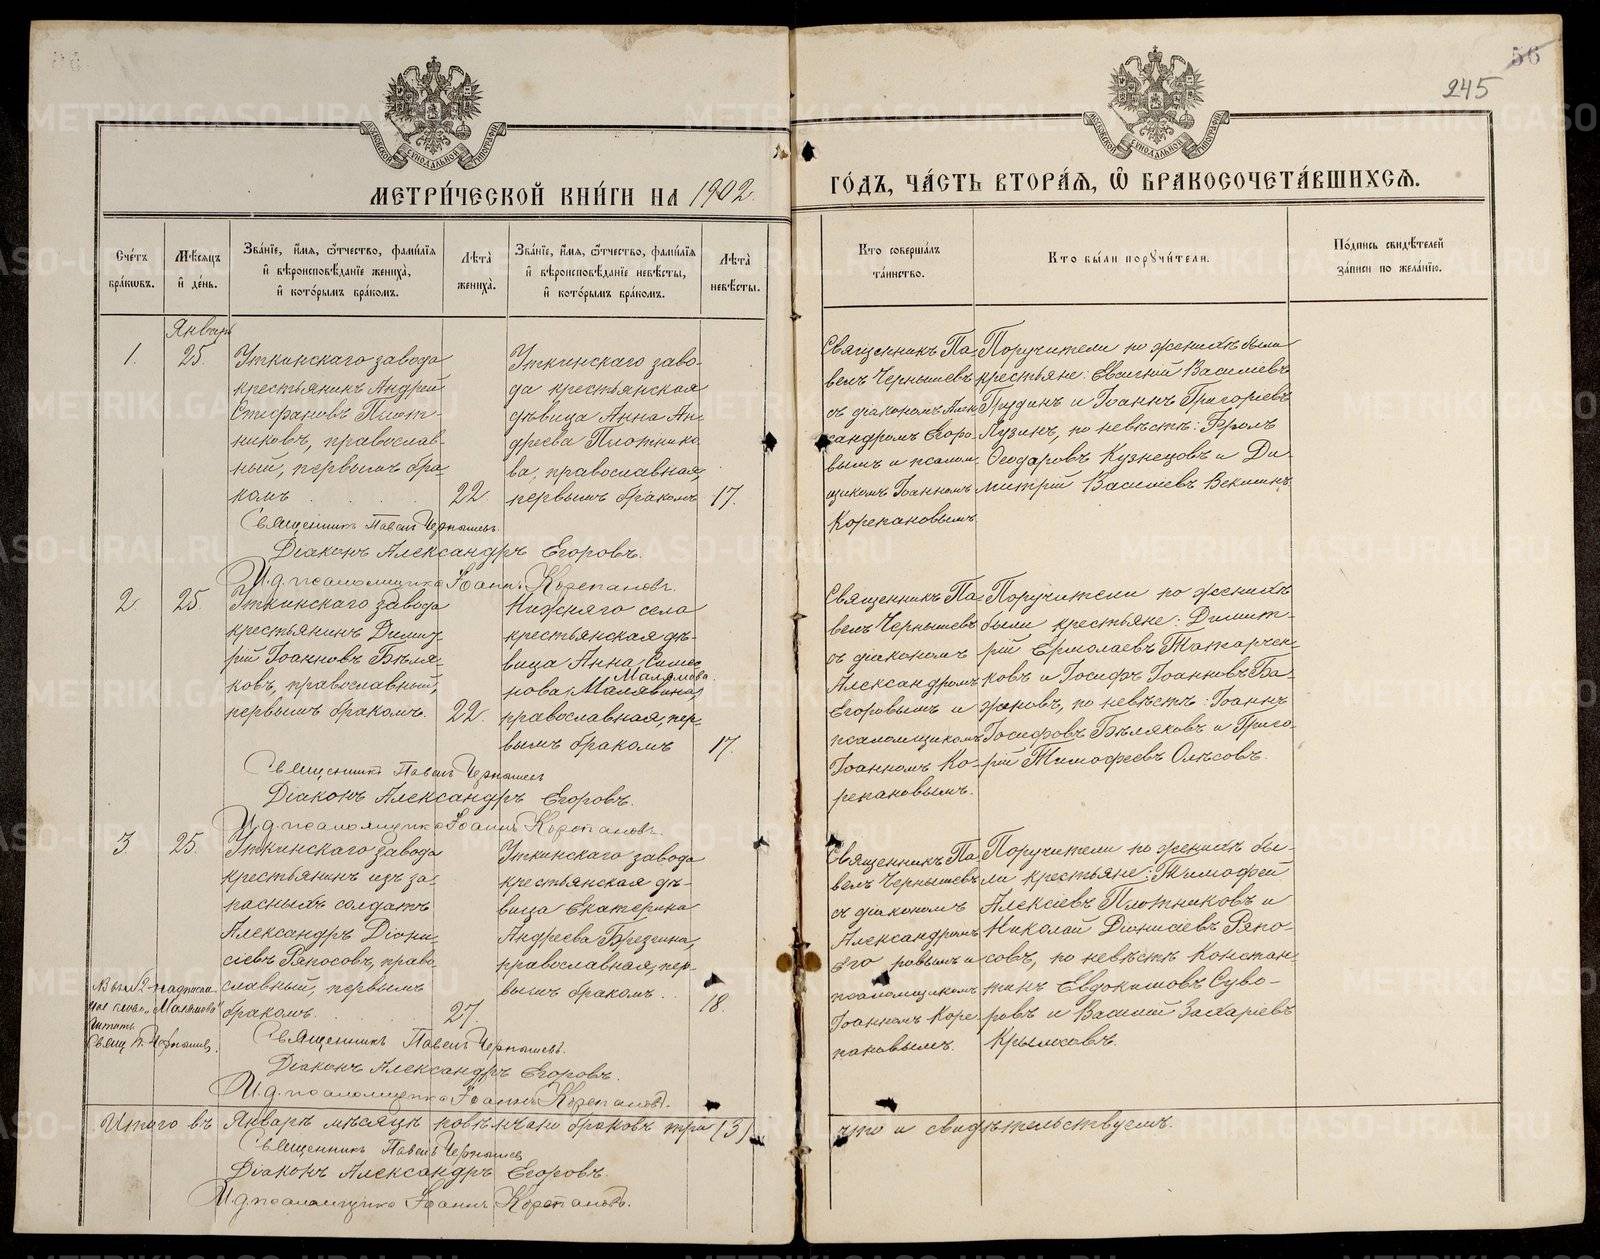 56
245
МОСКОВСКОЙ СѴНОДАЛЬНОЙ ТИПОГРАФІИ
МОСКОВСКОЙ СѴНОДАЛЬНОЙ ТИПОГРАФІИ
МЕТРИ́ЧЕСКОЙ КНИ́ГИ НА 1902
ГО́ДЪ, ЧА́СТЬ ВТОРА́Ѧ, Ѡ҆ БРАКОСОЧЕТА́ВШИХСѦ.
Сче́тъ бра́кѡвъ.
Мѣ́сѧцъ и҆ де́нь.
Зва́нїе, и҆́мѧ, ѻ҆́тчество, фами́лїѧ и҆ вѣроисповѣ́данїе жениха̀, и҆ кото́рымъ бра́комъ.
Лѣ́та жениха̀.
Зва́нїе, и҆́мѧ, ѻ҆́тчество, фами́лїѧ и҆ вѣроисповѣ́данїе невѣ́сты, и҆ кото́рымъ бра́комъ.
Лѣ́та невѣ́сты.
Кто соверша́лъ та́инство.
Кто бы́ли порꙋчи́тели.
По́дпись свидѣ́телей за́писи по жела́нїю.
Январь
1.
25.
Уткинскаго завода
крестьянинъ Андрей
Стефановъ Плот-
никовъ, православ-
ный, первымъ бра-
комъ
22.
Уткинскаго заво-
да крестьянская
дѣвица Анна Ан-
дреева Плотнико-
ва, православная,
первымъ бракомъ
17.
Священникъ Па-
велъ Чернышевъ
съ діакономъ Алек-
сандромъ Егоро-
вымъ и псалом-
щикомъ Іоанномъ
Корепановымъ.
Поручители по женихѣ были
крестьяне: Евгеній Василіевъ
Пудинъ и Іоаннъ Григоріевъ
Лузинъ, по невѣстѣ: Фролъ
Ѳеодоровъ Кузнецовъ и Ди-
митрій Василіевъ Векшинъ
Священникъ Павелъ Чернышевъ.
Діаконъ Александръ Егоровъ.
И.д. псаломщика Іоаннъ Корепановъ.
2.
25.
Уткинскаго завода
крестьянинъ Димит-
рій Іоанновъ Бѣля-
ковъ, православный,
первымъ бракомъ.
22.
Нижняго села
крестьянская дѣ-
вица Анна Симео-
Малямова
нова Малявина,
православная, пер-
вымъ бракомъ
17.
Священникъ Па-
велъ Чернышевъ
съ діакономъ
Александромъ
Егоровымъ и
псаломщикомъ
Іоанномъ Ко-
репановымъ.
Поручители по женихѣ
были крестьяне: Димит-
рій Ермолаевъ Татарчен-
ковъ и Іосифъ Іоанновъ Ба-
жановъ, по невѣстѣ: Іоаннъ
Іосифовъ Бѣляковъ и Григо-
рій Тимофеевъ Олѣсовъ.
Священникъ Павелъ Чернышевъ
Діаконъ Александръ Егоровъ.
И.д. псаломщика Іоаннъ Корепановъ.
3
25.
Уткинскаго завода
крестьянинъ изъ за-
пасныхъ солдатъ
Александръ Діони-
сіевъ Ряпосовъ, право-
славный, первымъ
бракомъ.
27.
Уткинскаго завода
крестьянская дѣ-
вица Екатерина
Андреева Брезгина,
православная, пер-
вымъ бракомъ.
18.
Священникъ Па-
велъ Чернышевъ
съ діакономъ
Александромъ
Егоровымъ и
псаломщикомъ
Іоанномъ Коре-
пановымъ.
Поручители по женихѣ бы-
ли крестьяне: Тимофей
Алексіевъ Плотниковъ и
Николай Діонисіевъ Ряпо-
совъ, по невѣстѣ Констан-
тинъ Евдокимовъ Суво-
ровъ и Василій Захаріевъ
Крылосовъ.
надписан-
Читать
Свящ. П. Чернышев.
Священникъ Павелъ Чернышевъ.
Діаконъ Александръ Егоровъ.
И.д. псаломщика Іоаннъ Корепановъ.
Итого въ Январѣ мѣсяцѣ повѣнчано браковъ три (3)
что и свидѣтельствуемъ.
Священникъ Павелъ Чернышев
Діаконъ Александръ Егоровъ.
И.д. псаломщика Іоаннъ Корепановъ.
METRIKI.GASO-URAL.RU